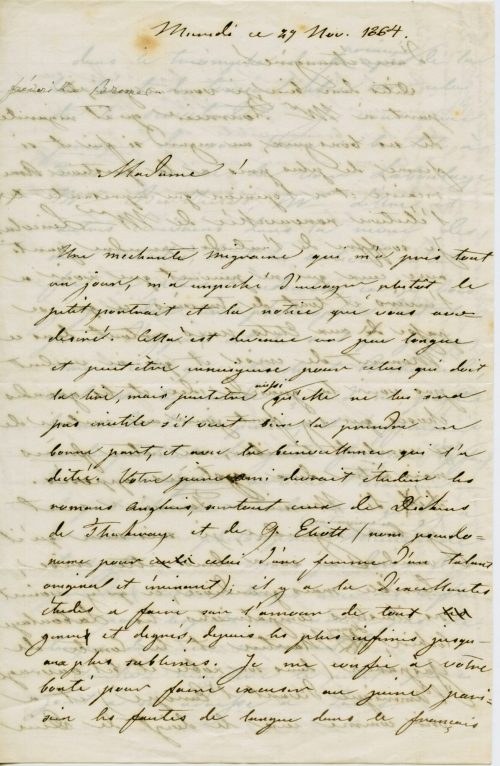 ce 29 Nov. 1864.
Madame!
Une mechante migraine qui m'a pris tout
un jour, m'a empeché d'envoyer plutot le
petit portrait et la notice que vous avez
desiré. Cella est devenue un peu longue
et peut etre ennuyeuse pour celui qui doit
la lire, mais peutetre aussi qu'elle ne lui sera
pas inutile s'il veut bien la prendre en
bonne part, et avec la bienveillance qui l'a
dictée. Votre jeune ami devrait étudier les
romans anglais, surtout ceux de Dickens
de Thakeray et de G. Eliott (nom pseudo-
nume pour celui d'une femme d'un talent
original et iminent); il y a la d'excellentes
études a faire sur l'amour de tout
genre et degrés, depuis les plus infimes jusqu
aux plus sublimes. Je me confie à votre
bonté pour faire excuser au jeune pari-
sien les fautes de langue dans le français